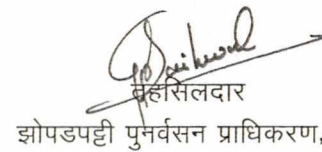 तहसिलदार
झोपडपट्टी पुनर्वसन प्राधिकरण,